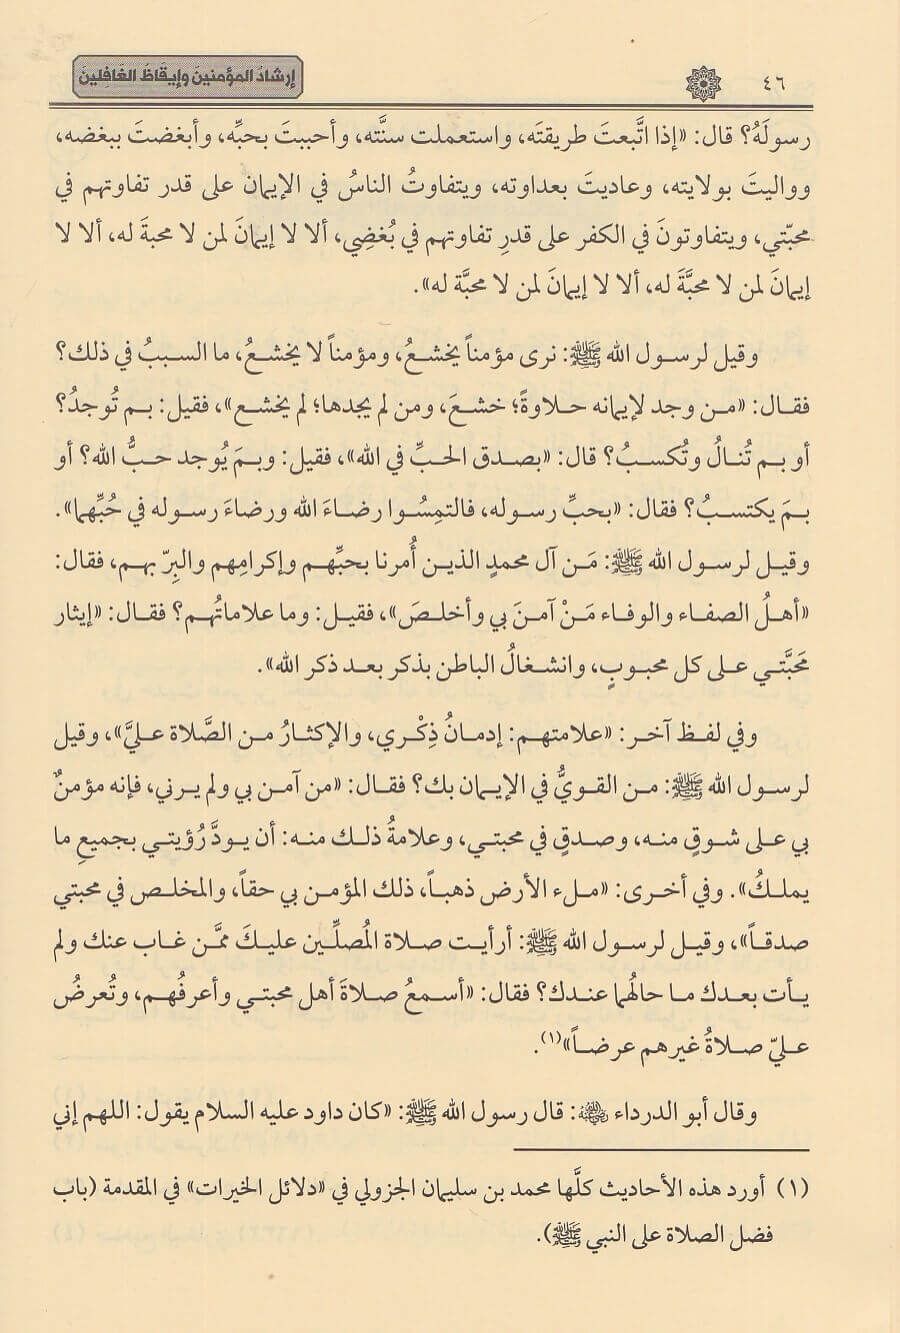 ٤٦
إرشادُ المؤمنينَ وإيقَاظُ الغَافِلينَ
رسولَهُ؟ قال: «إذا اتَّبعتَ طريقتَه، واستعملت سنَّته، وأحببتَ بحبِّه، وأبغضتَ ببغضه،
وواليتَ بولايته، وعاديتَ بعداوته، ويتفاوتُ الناسُ في الإيمان على قدر تفاوتهم في
محبّتي، ويتفاوتونَ في الكفر على قدرِ تفاوتهم في بُغضِي، ألا لا إيمانَ لمن لا محبةَ له، ألا لا
إيمانَ لمن لا محبَّةَ له، ألا لا إيمانَ لمن لا محبَّة له».
وقيل لرسول الله ﷺ: نرى مؤمناً يخشعُ، ومؤمناً لا يخشعُ، ما السببُ في ذلك؟
فقال: «من وجد لإيمانه حلاوةً؛ خشعَ، ومن لم يجدها؛ لم يخشع»، فقيل: بم تُوجدُ؟
أو بم تُنالُ وتُكسبُ؟ قال: «بصدق الحبِّ في الله»، فقيل: وبمَ يُوجد حبُّ الله؟ أو
بمَ يكتسبُ؟ فقال: «بحبِّ رسوله، فالتمِسُوا رضاءَ الله ورضاءَ رسوله في حُبِّهما».
وقيل لرسول الله ﷺ: مَن آل محمدٍ الذين أُمرنا بحبِّهم وإكرامِهم والبِرّ بهم، فقال:
«أهلُ الصفاء والوفاء مَنْ آمنَ بي وأخلصَ»، فقيل: وما علاماتُهم؟ فقال: «إيثار
مَحَبَّتي على كل محبوبٍ، وانشغالُ الباطن بذكر بعد ذكر الله».
وفي لفظ آخر: «علامتهم: إدمانُ ذِكْري، والإكثارُ من الصَّلاة عليَّ»، وقيل
لرسول الله ﷺ: من القويُّ في الإيمان بك؟ فقال: «من آمن بي ولم يرني، فإنه مؤمنٌ
بي على شوقٍ منه، وصدقٍ في محبتي، وعلامةُ ذلك منه: أن يودَّ رُؤيتي بجميعِ ما
يملكُ». وفي أخرى: «ملء الأرض ذهباً، ذلك المؤمن بي حقاً، والمخلص في محبتي
صدقاً»، وقيل لرسول الله ﷺ: أرأيت صلاة المُصلِّين عليكَ ممَّن غاب عنك ولم
يأت بعدك ما حالهُما عندك؟ فقال: «أسمعُ صلاةَ أهل محبتي وأعرفُهم، وتُعرضُ
عليّ صلاةُ غيرهم عرضاً»(١).
وقال أبو الدرداء ﵁: قال رسول الله ﷺ: «كان داود عليه السلام يقول: اللهم إني
(١) أورد هذه الأحاديث كلَّها محمد بن سليمان الجزولي في «دلائل الخيرات» في المقدمة (باب
فضل الصلاة على النبي ﷺ).